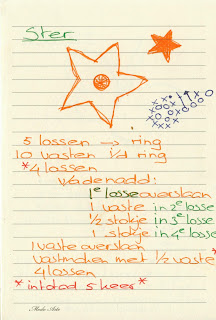 Ster
5 lossen → ring
10 vasten i/d ring
*4 lossen
1e losse overslaan
1 vaste in 2e losse
½ stokje in 3e losse
1 stokje in 4e losse
1 vaste overslaan
vastmaken met ½ vaste *
4 lossen
* in totaal 5 keer *